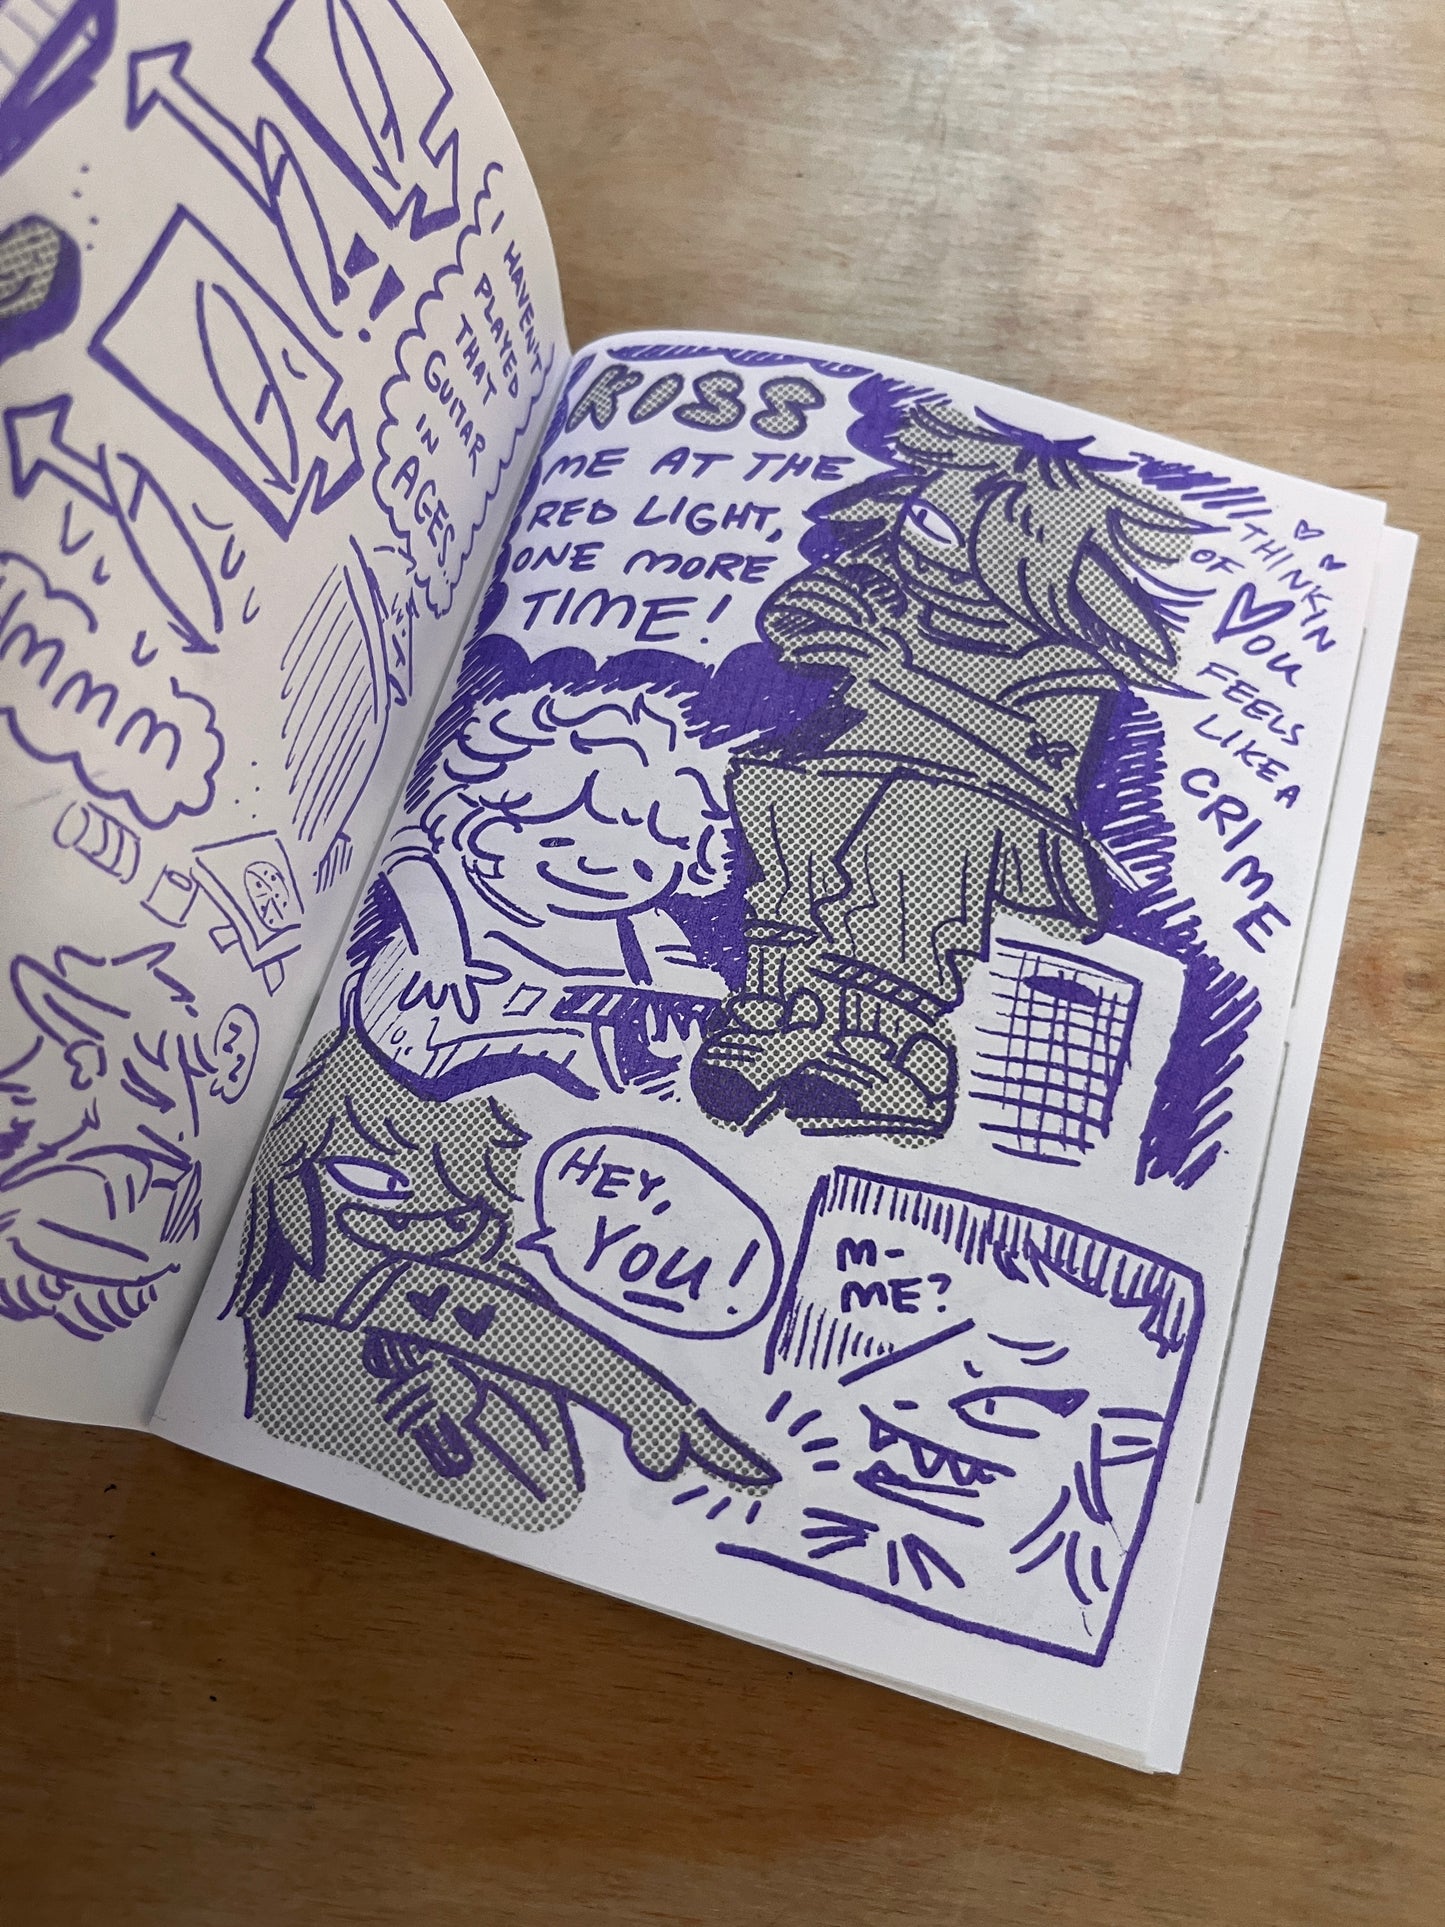 I HAVEN'T
PLAYED
THAT
GUITAR
IN
AGES.
MMMM
??
KISS
ME AT THE
RED LIGHT,
ONE MORE
TIME!
THINKIN
OF YOU
FEELS
LIKE A
CRIME
HEY,
YOU!
M-
ME?